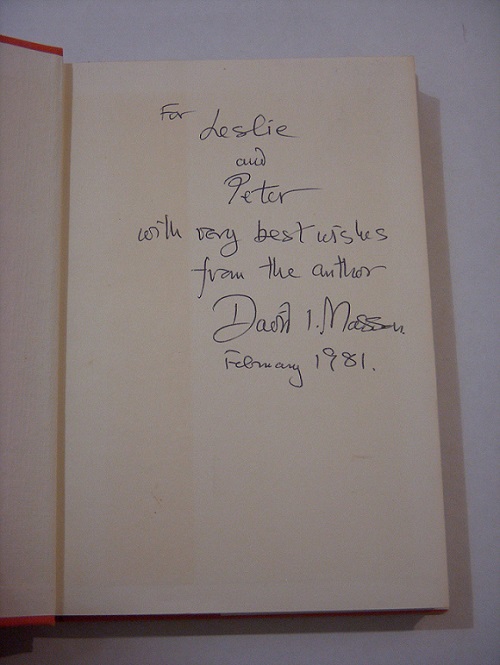 For
Leslie
and
Peter
with very best wishes
from the author
David I. Masson
February 1981.